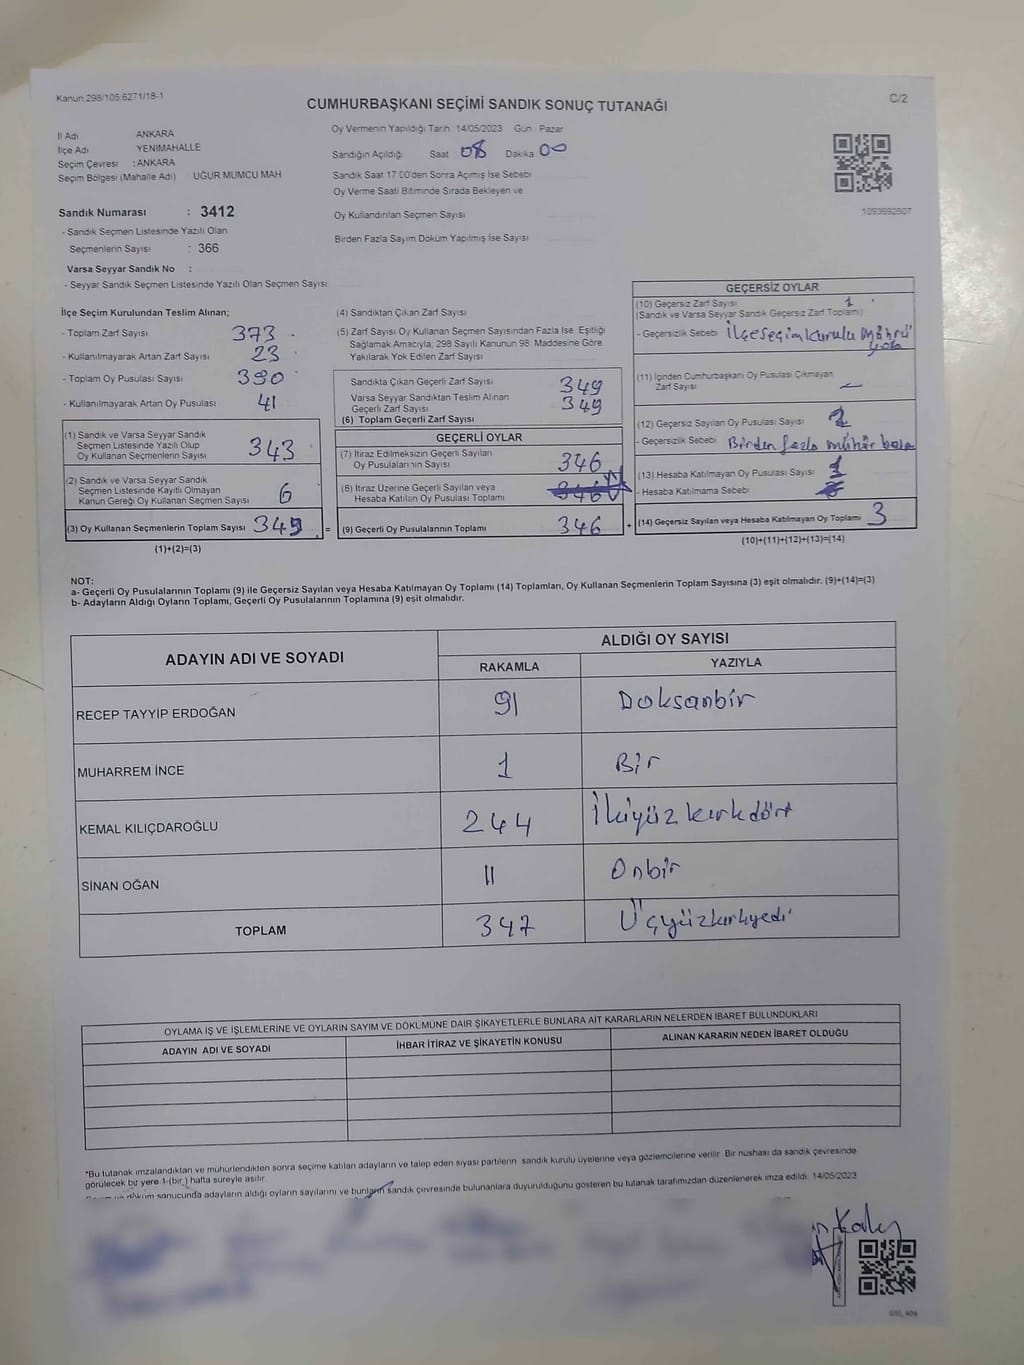 Kanun:298/105,6271/18-1
CUMHURBAŞKANI SEÇİMİ SANDIK SONUÇ TUTANAĞI
C/2
İl Adı ANKARA
İlçe Adı YENİMAHALLE
Seçim Çevresi : ANKARA
Seçim Bölgesi (Mahalle Adı) UĞUR MUMCU MAH
Sandık Numarası : 3412
- Sandık Seçmen Listesinde Yazılı Olan
Seçmenlerin Sayısı : 366
Varsa Seyyar Sandık No :
- Seyyar Sandık Seçmen Listesinde Yazılı Olan Seçmen Sayısı
Oy Vermenin Yapıldığı Tarih 14/05/2023 Gün Pazar
Sandığın Açıldığı Saat 08 Dakika 00
Sandık Saat 17:00'den Sonra Açımış İse Sebebi
Oy Verme Saati Bitiminde Sırada Bekleyen ve
Oy Kullandırılan Seçmen Sayısı
Birden Fazla Sayım Döküm Yapılmış İse Sayısı
1093692607
İlçe Seçim Kurulundan Teslim Alınan;
- Toplam Zarf Sayısı 373
- Kullanılmayarak Artan Zarf Sayısı 23
- Toplam Oy Pusulası Sayısı 390
- Kullanılmayarak Artan Oy Pusulası 41
(1) Sandık ve Varsa Seyyar Sandık
Seçmen Listesinde Yazılı Olup
Oy Kullanan Seçmenlerin Sayısı 343
(2) Sandık ve Varsa Seyyar Sandık
Seçmen Listesinde Kayıtlı Olmayan
Kanun Gereği Oy Kullanan Seçmen Sayısı 6
(3) Oy Kullanan Seçmenlerin Toplam Sayısı 349 =
(1)+(2)=(3)
(4) Sandıktan Çıkan Zarf Sayısı
(5) Zarf Sayısı Oy Kullanan Seçmen Sayısından Fazla İse, Eşitliği
Sağlamak Amacıyla; 298 Sayılı Kanunun 98. Maddesine Göre
Yakılarak Yok Edilen Zarf Sayısı
Sandıkta Çıkan Geçerli Zarf Sayısı 349
Varsa Seyyar Sandıktan Teslim Alınan
Geçerli Zarf Sayısı 349
(6) Toplam Geçerli Zarf Sayısı
GEÇERLİ OYLAR
(7) İtiraz Edilmeksizin Geçerli Sayılan
Oy Pusulalarının Sayısı 346
(8) İtiraz Üzerine Geçerli Sayılan veya
Hesaba Katılan Oy Pusulası Toplamı 346
(9) Geçerli Oy Pusulalarının Toplamı 346 +
GEÇERSİZ OYLAR
(10) Geçersiz Zarf Sayısı 1
(Sandık ve Varsa Seyyar Sandık Geçersiz Zarf Toplamı)
- Geçersizlik Sebebi İlçe seçim kurulu mührü
yok
(11) İçinden Cumhurbaşkanı Oy Pusulası Çıkmayan
Zarf Sayısı
(12) Geçersiz Sayılan Oy Pusulası Sayısı
- Geçersizlik Sebebi Birden fazla mühür
(13) Hesaba Katılmayan Oy Pusulası Sayısı
- Hesaba Katılmama Sebebi
(14) Geçersiz Sayılan veya Hesaba Katılmayan Oy Toplamı 3
(10)+(11)+(12)+(13)=(14)
NOT:
a- Geçerli Oy Pusulalarının Toplamı (9) ile Geçersiz Sayılan veya Hesaba Katılmayan Oy Toplamı (14) Toplamları, Oy Kullanan Seçmenlerin Toplam Sayısına (3) eşit olmalıdır. (9)+(14)=(3)
b- Adayların Aldığı Oyların Toplamı, Geçerli Oy Pusulalarının Toplamına (9) eşit olmalıdır.
ADAYIN ADI VE SOYADI
ALDIĞI OY SAYISI
RAKAMLA YAZIYLA
RECEP TAYYİP ERDOĞAN 91 Doksanbir
MUHARREM İNCE 1 Bir
KEMAL KILIÇDAROĞLU 244 İkiyüzkırkdört
SİNAN OĞAN 11 Onbir
TOPLAM 347 Üçyüzkırkyedi
OYLAMA İŞ VE İŞLEMLERİNE VE OYLARIN SAYIM VE DÖKÜMÜNE DAİR ŞİKAYETLERLE BUNLARA AİT KARARLARIN NELERDEN İBARET BULUNDUKLARI
ADAYIN ADI VE SOYADI İHBAR İTİRAZ VE ŞİKAYETİN KONUSU ALINAN KARARIN NEDEN İBARET OLDUĞU
*Bu tutanak imzalandıktan ve mühürlendikten sonra seçime katılan adayların ve talep eden siyasi partilerin sandık kurulu üyelerine veya gözlemcilerine verilir. Bir nüshası da sandık çevresinde
görülecek bir yere 1-(bir,) hafta süreyle asılır.
döküm sonucunda adayların aldığı oyların sayılarını ve bunların sandık çevresinde bulunanlara duyurulduğunu gösteren bu tutanak tarafımızdan düzenlenerek imza edildi. 14/05/2023